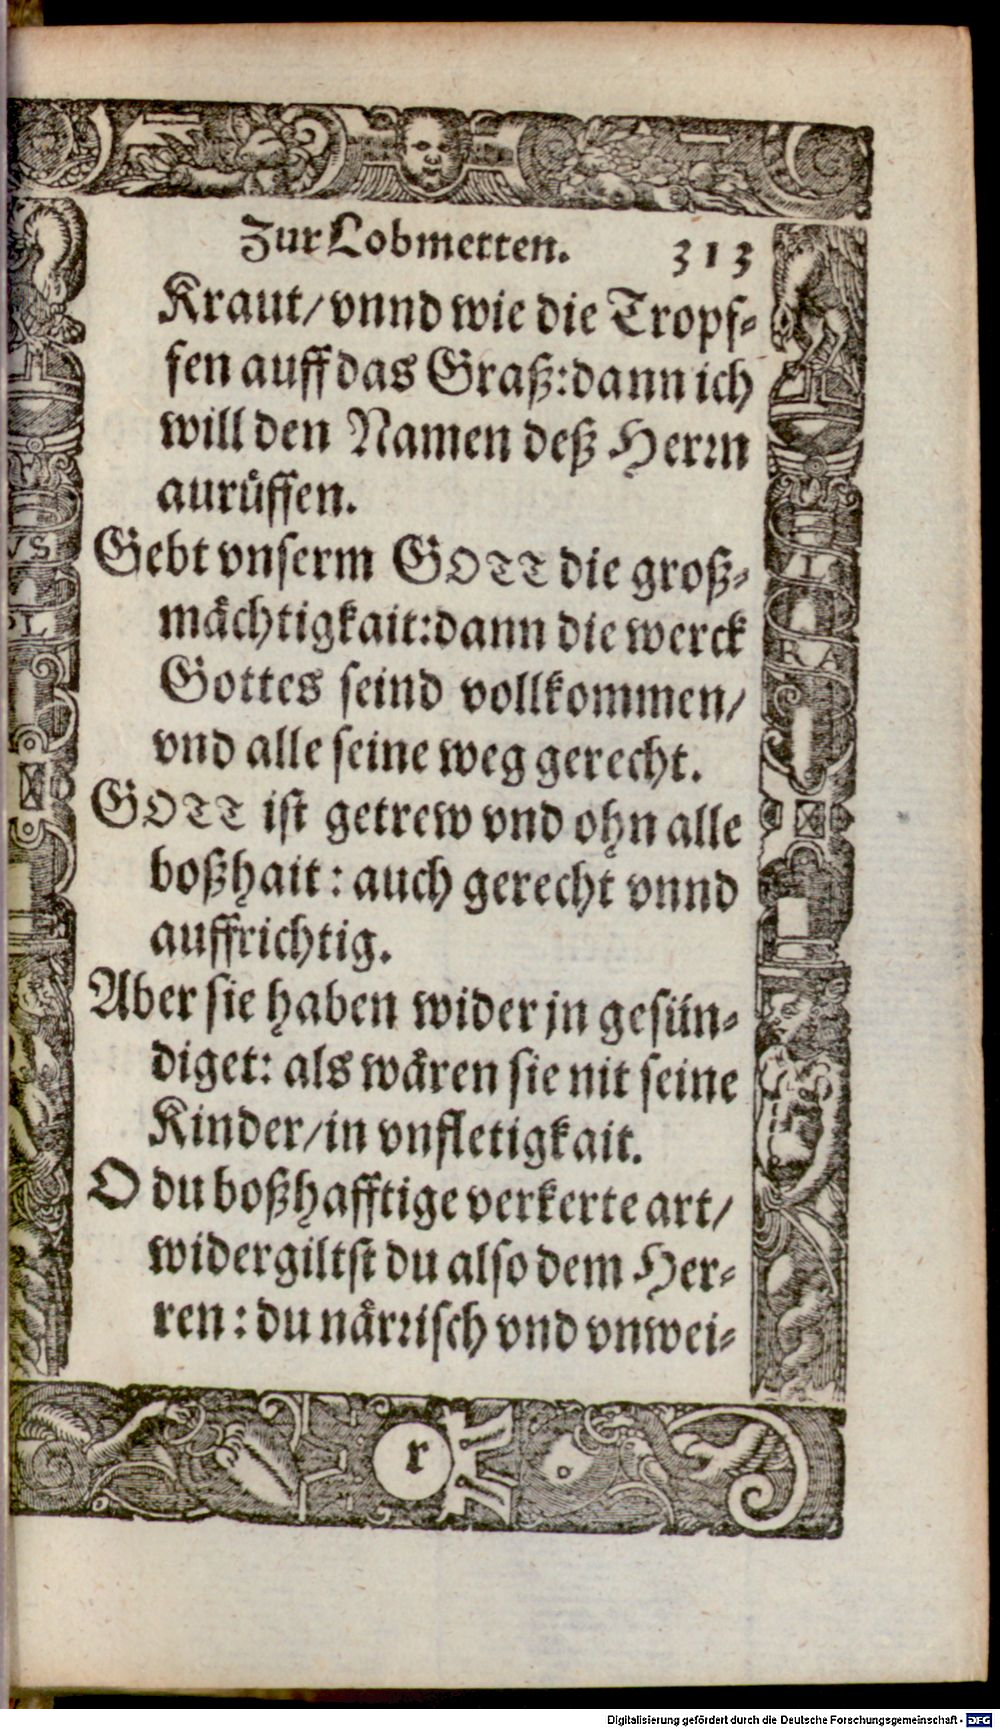 Zur Lobmetten. 313
Kraut/ vnnd wie die Tropf⸗
fen auff das Graß: dann ich
will den Namen deß Herrn
anrůffen.
Gebt vnserm GOTT die groß⸗
mächtigkait: dann die werck
Gottes seind vollkommen/
vnd alle seine weg gerecht.
GOTT ist getrew vnd ohn alle
boßhait: auch gerecht vnnd
auffrichtig.
Aber sie haben wider jn gesün⸗
diget: als wären sie nit seine
Kinder/ in vnfletigkait.
O du boßhafftige verkerte art/
widergiltst du also dem Her⸗
ren: du närrisch vnd vnwei⸗
r
VS
PL
I
RA
Digitalisierung gefördert durch die Deutsche Forschungsgemeinschaft - DFG